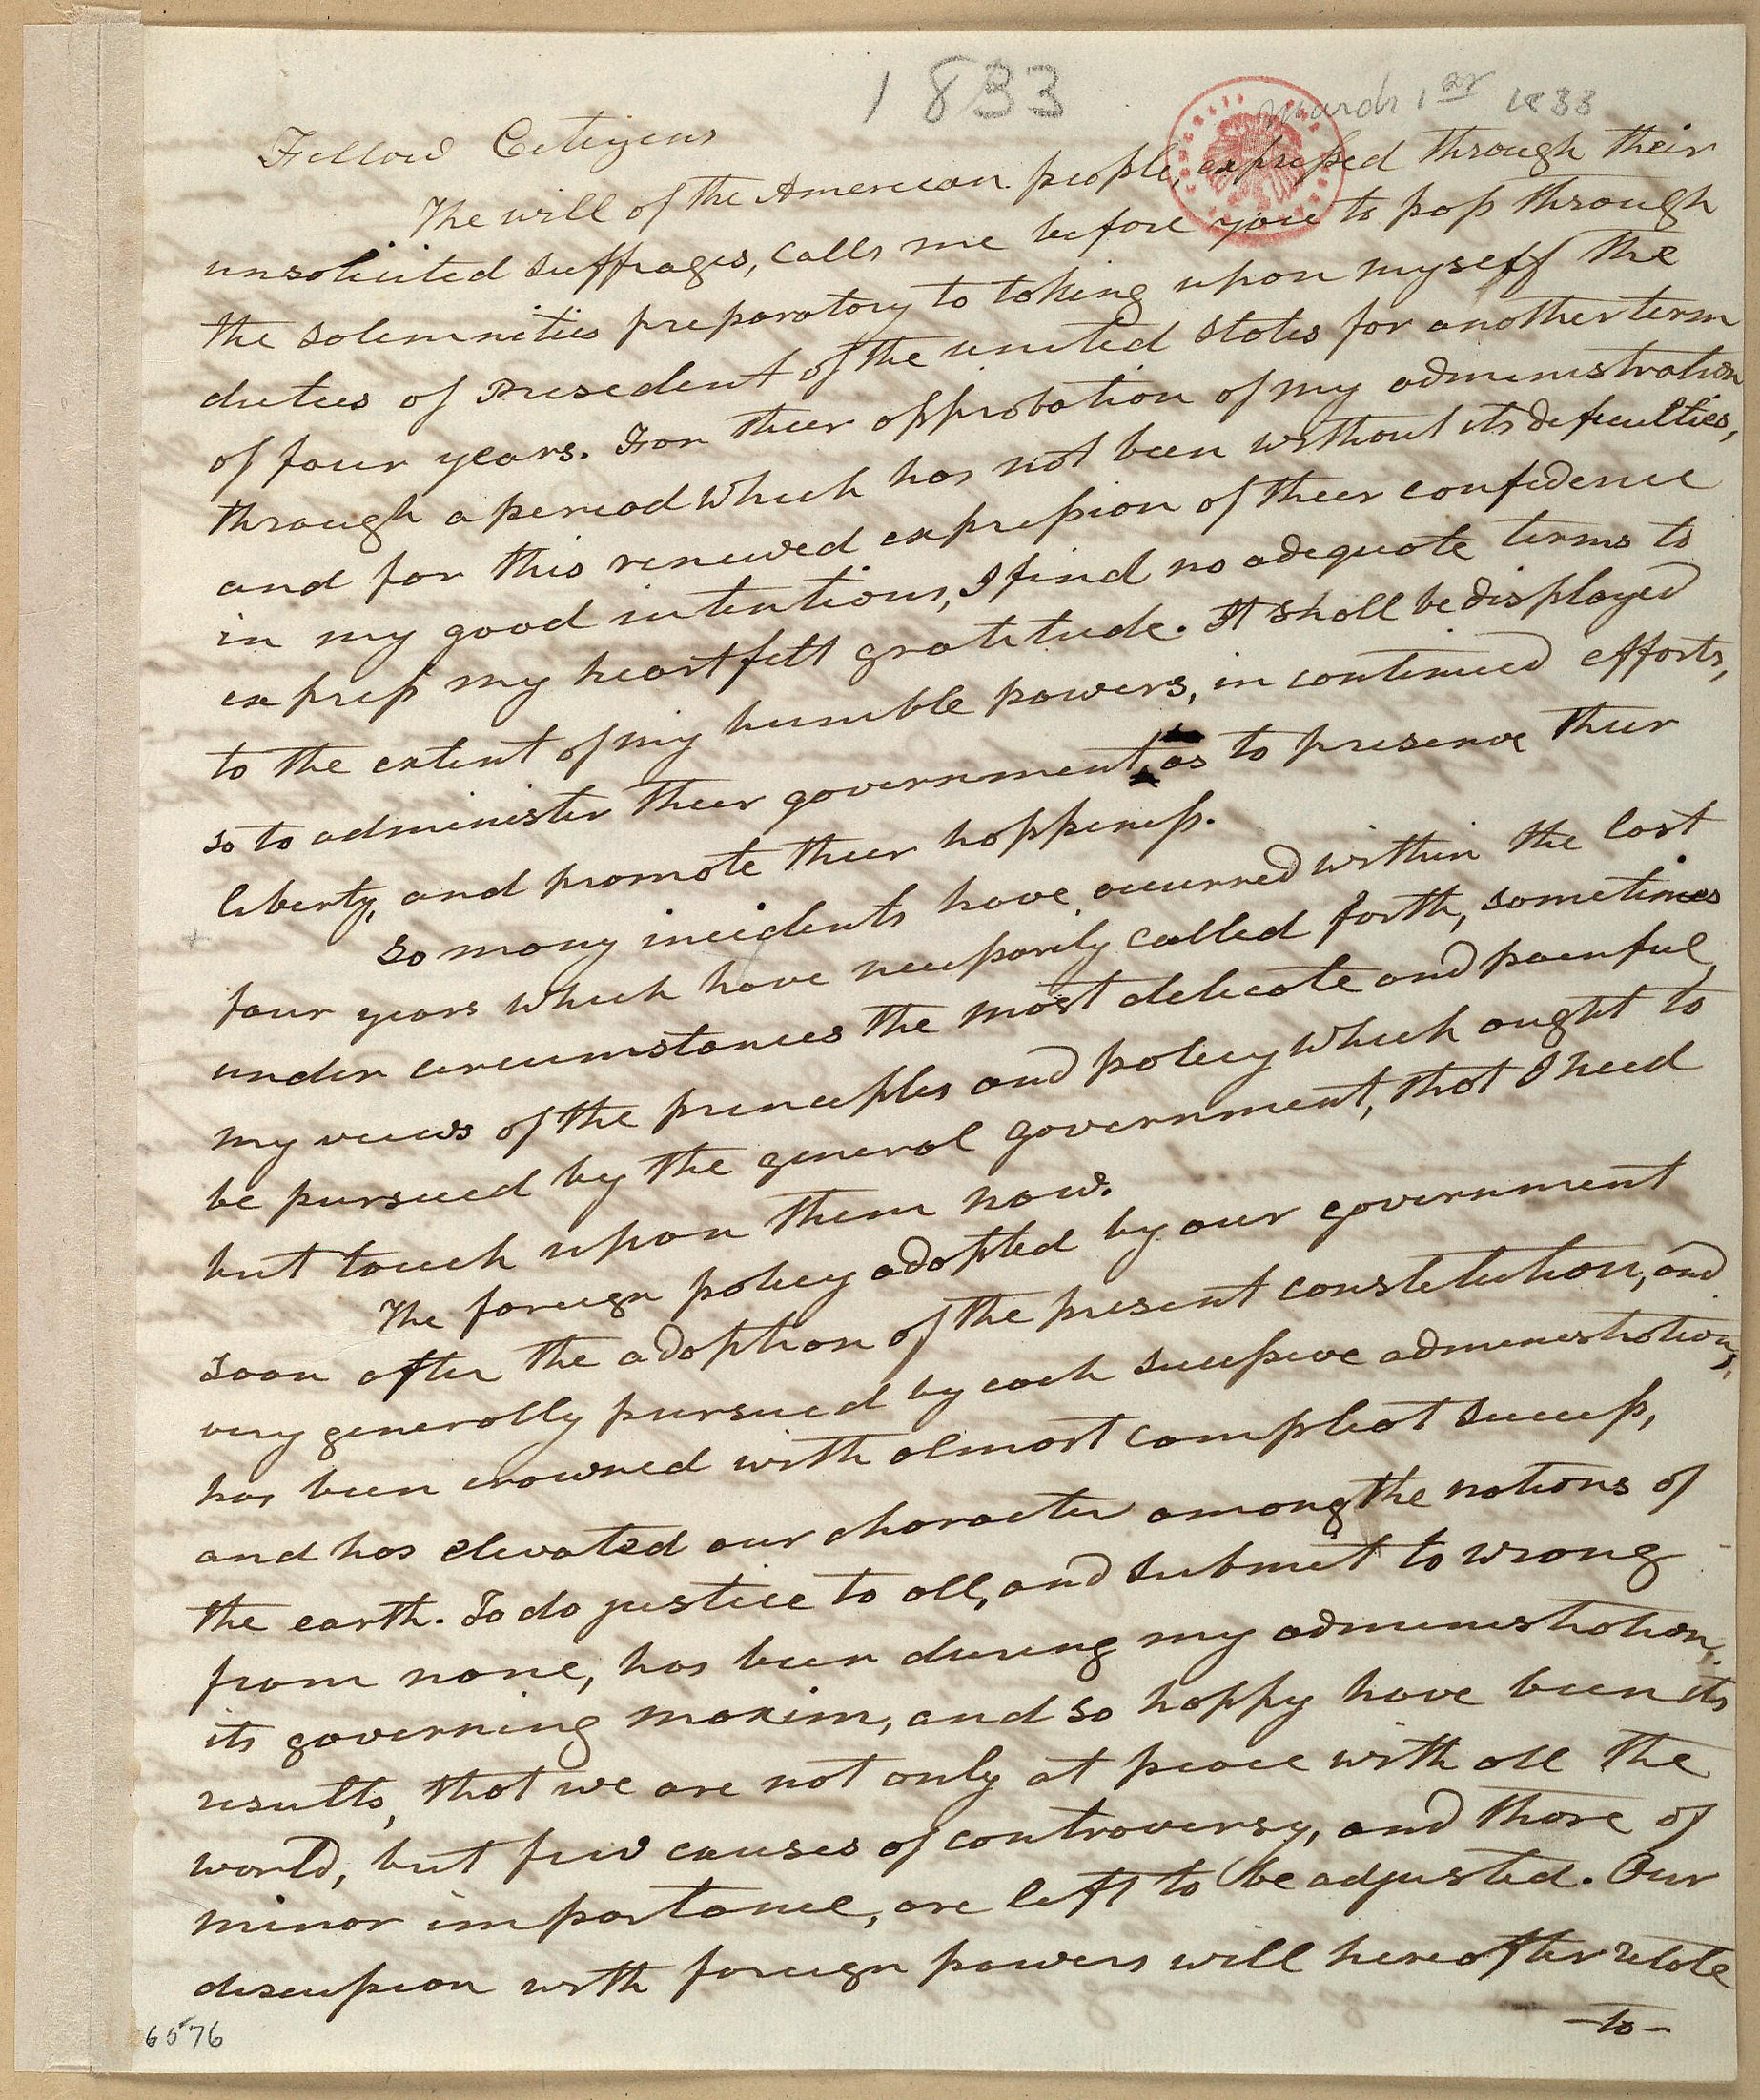 1833
March 1st 1833
Fellow Citizens
The will of the American people, expressed through their
unsolicited suffrages, calls me before you to pass through
the solemnities preparatory to taking upon myself the
duties of President of the united States for another term
of four years. For their approbation of my administration
through a period which has not been without its difficulties,
and for this renewed expression of their confidence
in my good intentions, I find no adequate terms to
express my heartfelt gratitude. It shall be displayed
to the extent of my humble powers, in continued efforts,
so to administer their government, as to preserve their
liberty, and promote their happiness.
So many incidents have occurred within the last
four years which have necessarily called forth, sometimes
under circumstances the most delicate and painful,
my views of the principles and policy which ought to
be pursued by the general government, that I need
but touch upon them now.
The foreign policy adopted by our government
soon after the adoption of the present constitution, and
very generally pursued by each successive administrations,
has been crowned with almost compleat success,
and has elevated our character among the nations of
the earth. To do justice to all, and submit to wrong
from none, has been during my administration,
its governing maxim, and so happy have been its
results, that we are not only at peace with all the
world, but few causes of controversy, and those of
minor importance, are left to be adjusted. Our
discussion with foreign powers will hereafter relate
-to-
6576